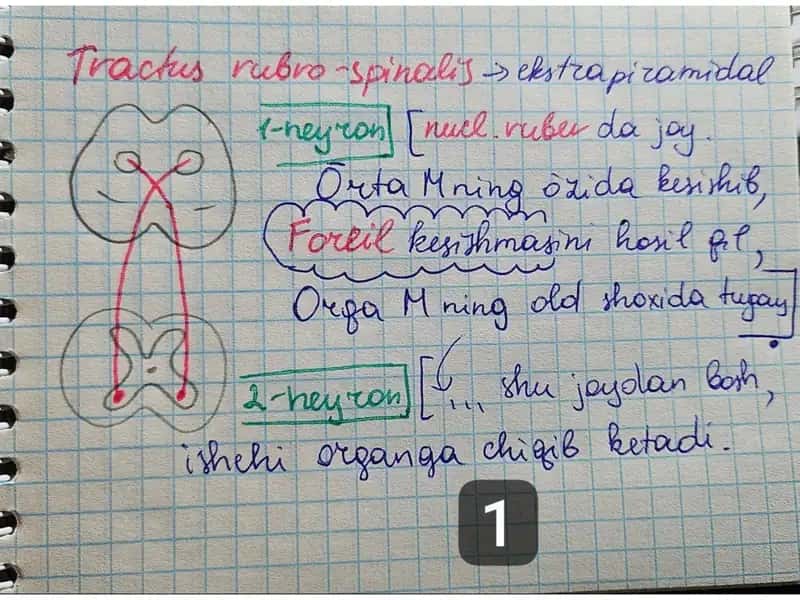 Tractus rubro-spinalis → ekstrapiramidal
1-neyron [nucl. ruber da joy.
Orta M ning özida kesishib,
Foreil kesishmasini hosil qil,
Orqa M ning old shoxida tugay]
2-neyron [... shu joydan bosh,
ishchi organga chiqib ketadi.
1